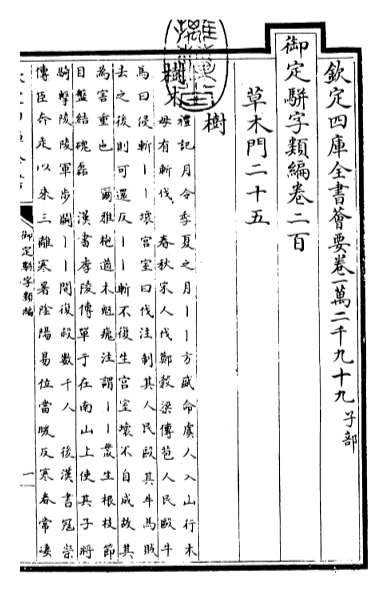 欽定四庫全書薈要卷一萬二千九十九 子部
御定駢字類編卷二百
草木門二十五
樹
樹木
禮記月令季夏之月丨丨方盛命虞人入山行木
毋有斬伐 春秋宋人伐鄭穀梁傳苞人民毆牛
馬曰侵斬丨丨壞宮室曰伐注制其人民毆其牛馬賊
去之後則可還反丨丨斬不復生宮室壞不自成故其
為害重也 爾雅枹遒木魁瘣注謂丨丨叢生根枝節
目盤結磈磊 漢書李陵傳單于在南山上使其子將
騎擊陵陵軍步鬭丨丨間復殺數千人 後漢書寇榮
傳臣奔走以來三離寒暑陰陽易位當暖反寒春常淒
御定駢字類編
一